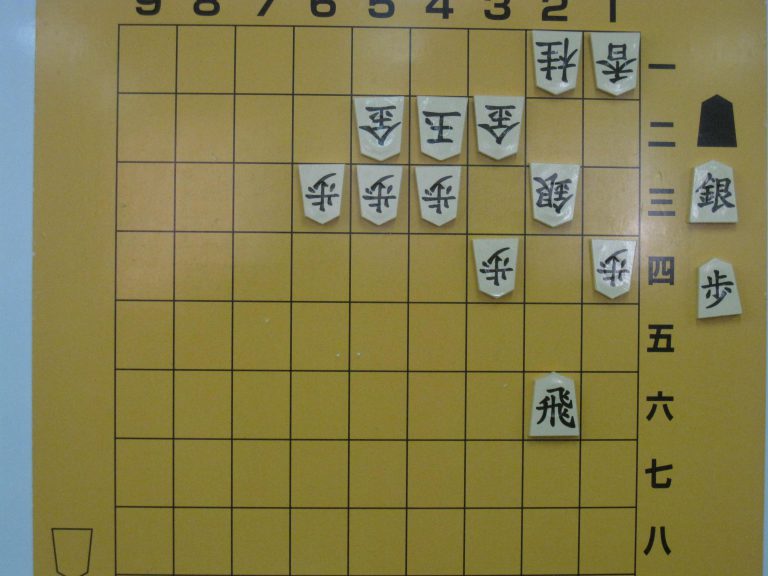 9 8 7 6 5 4 3 2 1
桂 香 一
金 玉 金 二
歩 歩 歩 銀 三 銀
歩 歩 四 歩
五
飛 六
七
八